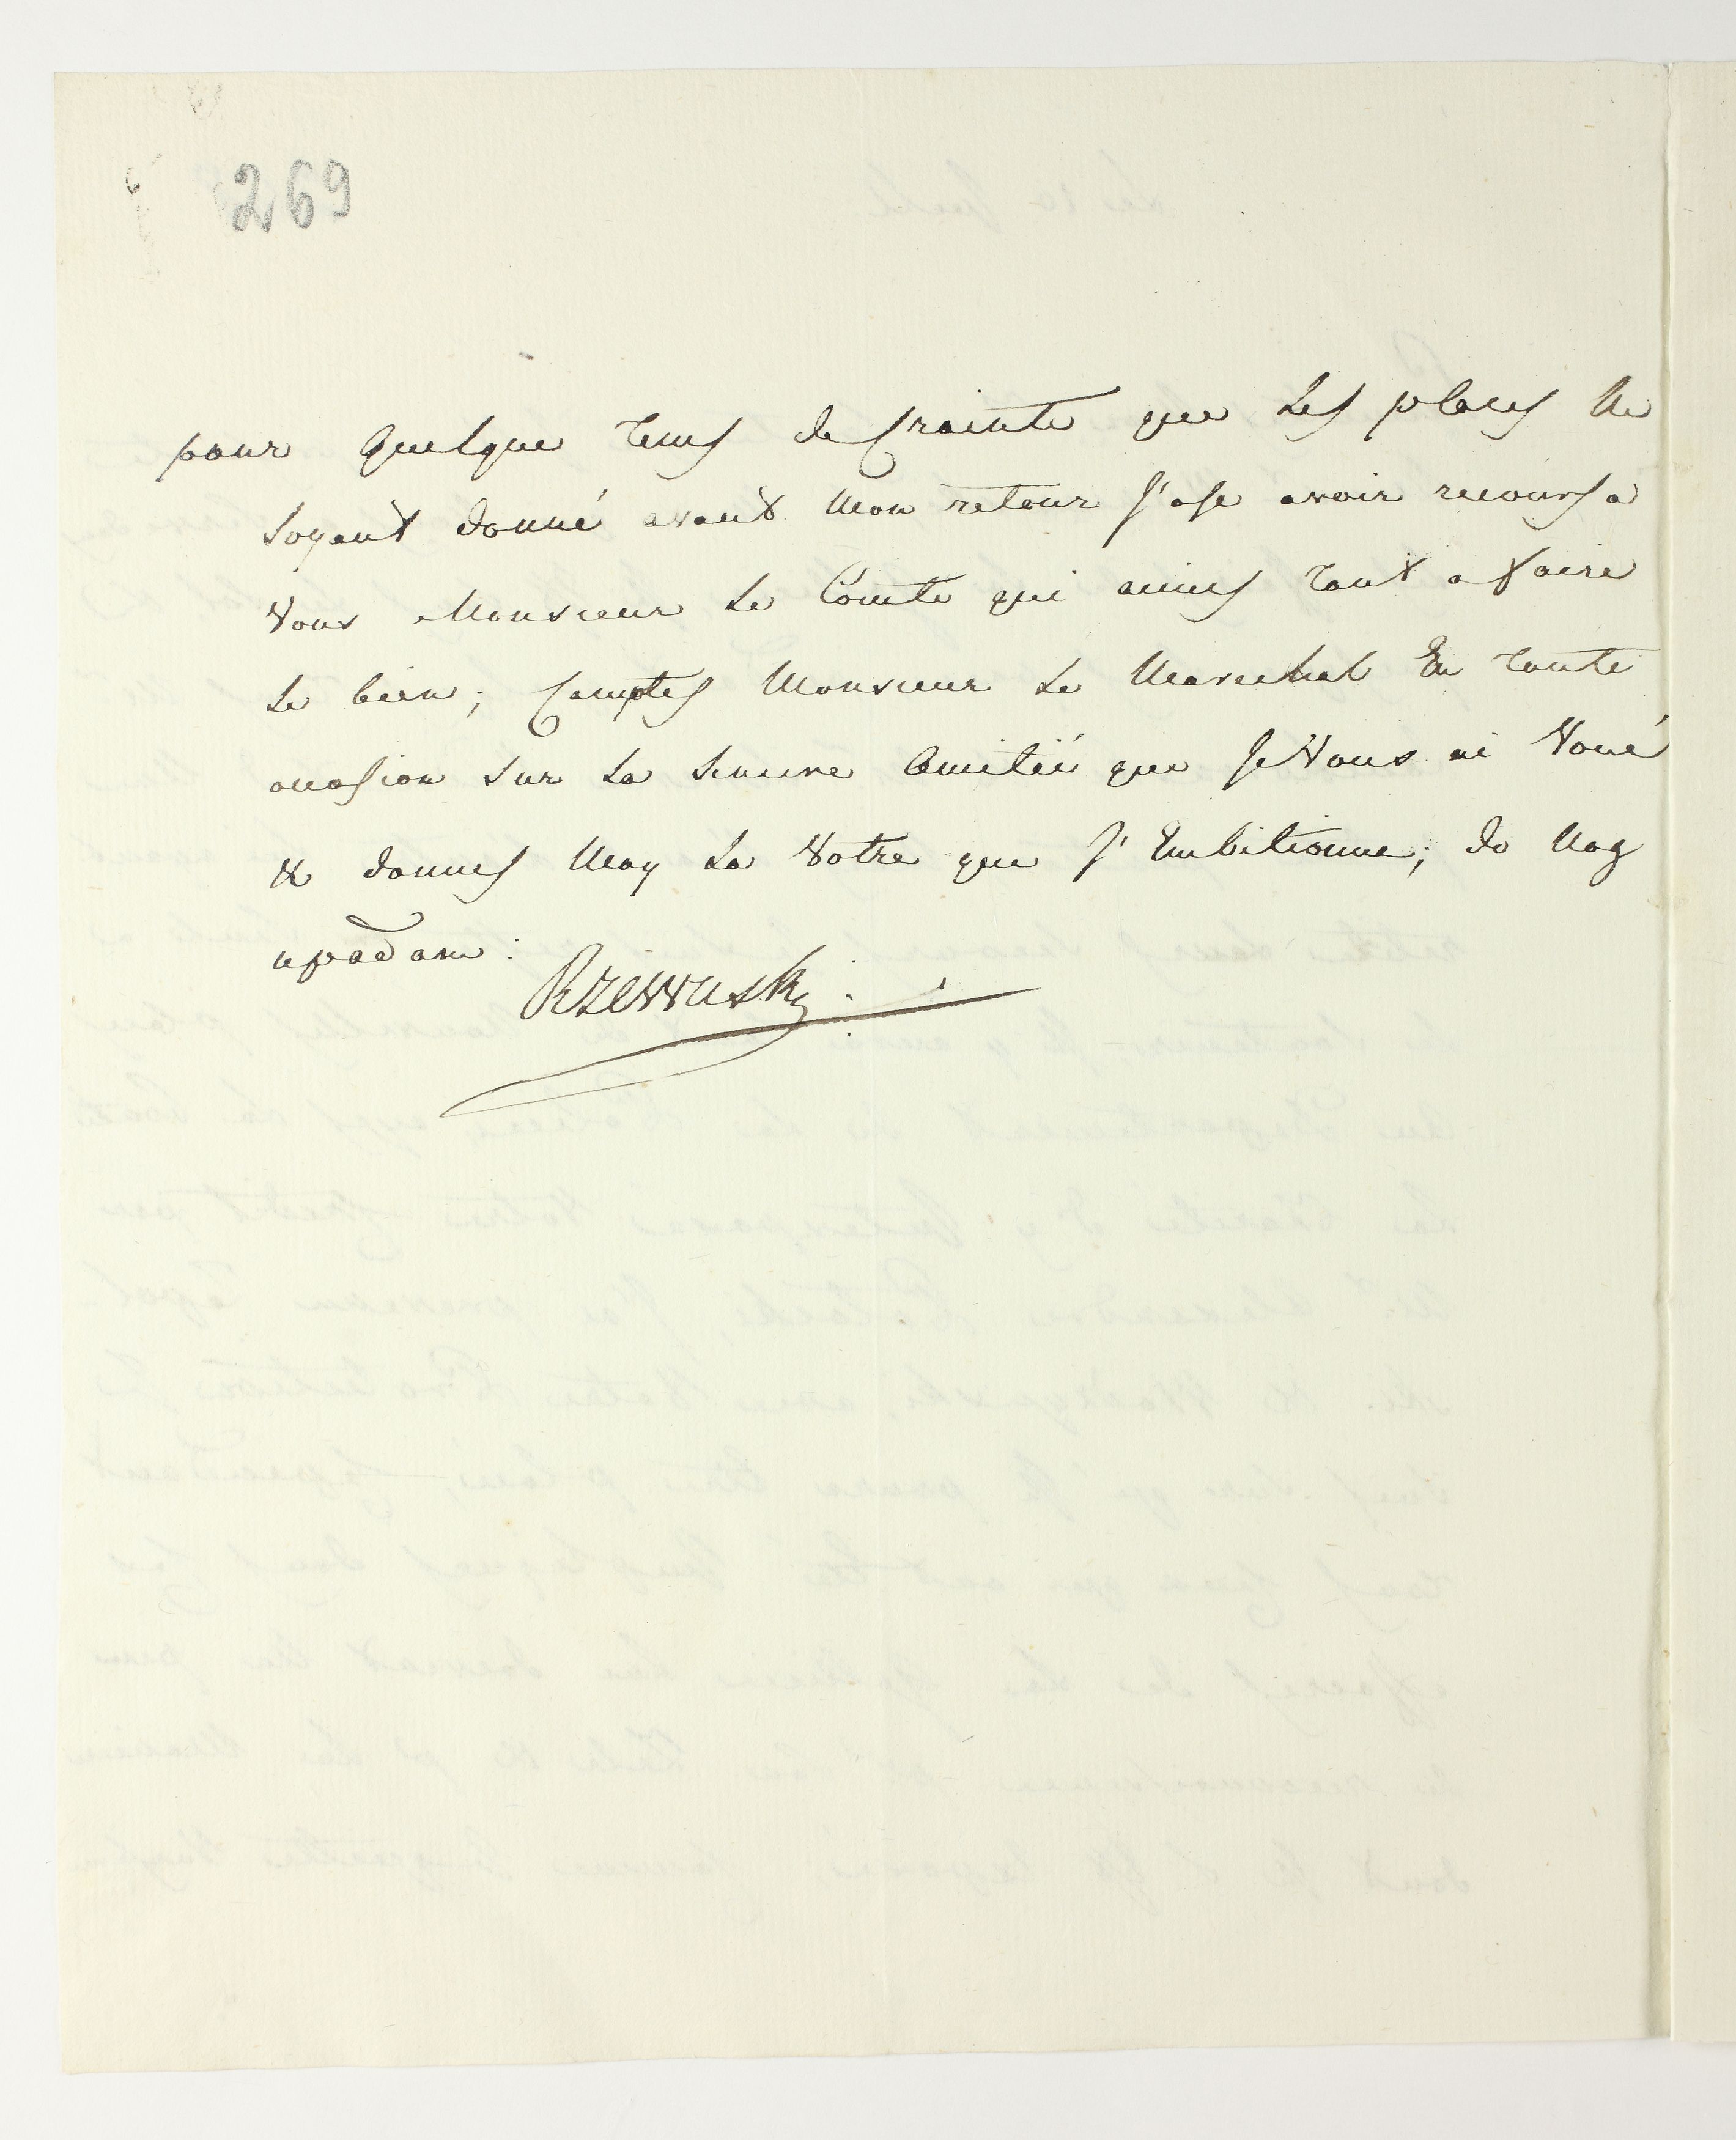 269
pour quelque tems de Crainte que les places ne
soyent donné avant mon retour j'ose avoir recours a
Vous Monsieur le Comte qui aimes tant a faire
le bien; Comptes Monsieur le Marechal En toute
occasion sur la sincere Amitié que je Vous ai Voué
& donnes Moy la Votre que j'Embitionne; do Nog
upadam:
Rzewuski